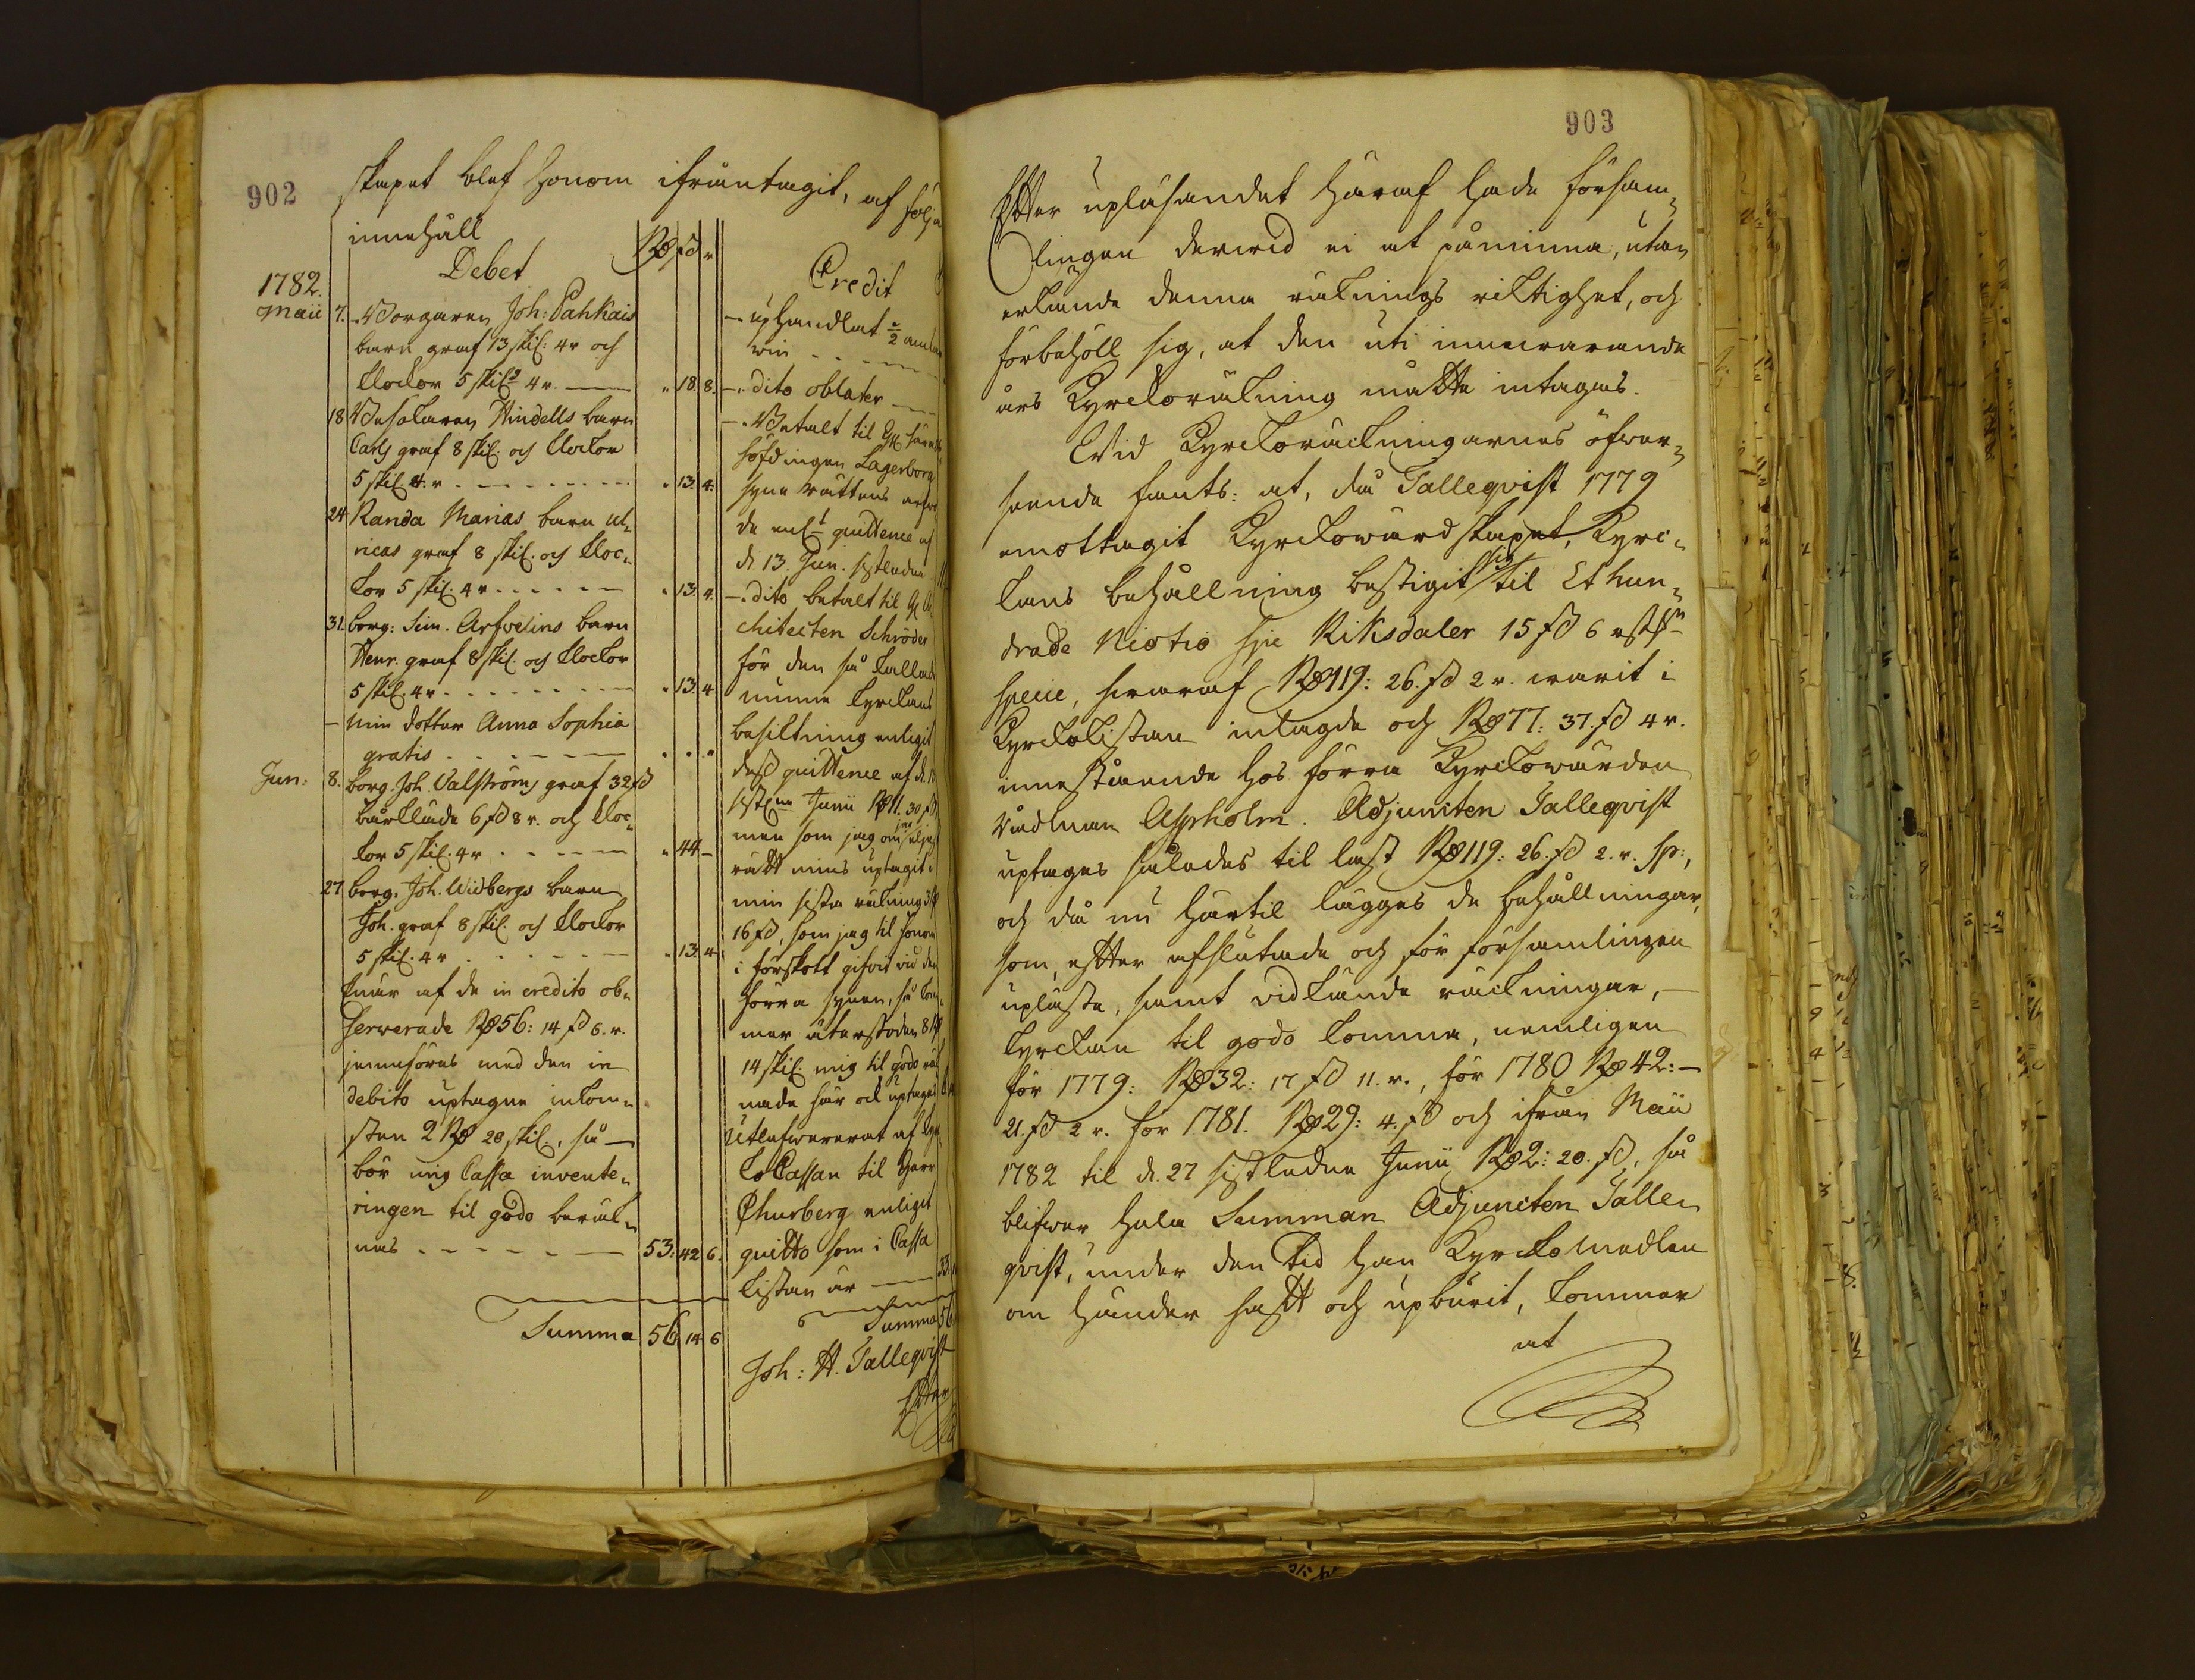 902
skapet blef honom ifråntagit, af följa
innehåll
Debet
Rd sk r
1782.
Maii 7. Borgaren Joh: Pahkais
barn graf 13 skil: 4 r och
klockor 5 skil. 4 r. — " 18. 8.
18 Besökaren Hindells barn
Carls graf 8 skil. och klockor
5 skil 4. r - - - " 13. 4.
24 Randa Marias barn Ul-
ricas graf 8 skil. och kloc-
kor 5 skil. 4 r - - - " 13. 4.
31. borg: Sim. Arfvelins barn
Henr. graf 8 skil. och klockor
5 skil. 4 r - - - " 13. 4
— min dotter Anna Sophia
gratis - - - " " "
Jun: 8. borg. Joh. Valströms graf 32 sk
bårkläde 6 sk 8 r. och kloc-
kor 5 skil. 4 r - - - " 44 —
27 borg. Joh. Widbergs barn
Joh. graf 8 skil. och klockor
5 skil. 4 r - - - " 13. 4
När af de in credito ob-
serverade Rd 56: 14 sk 6. r.
jemnföras med den in
debito uptagne inkom-
sten 2 Rd 20 skil., så —
bör mig Cassa invente-
ringen til godo beräk-
nas - - - 53: 42 6.
Summa 56 14 6
Credit
— uphandlat
win - - -
— dito oblater —
— Betalt til
höfdingen Lagerborg
syne Rättens
de quittence af
d. 13. Jun. sistledne
— dito betalt til
chitecten Schröder
för den så kallade
kyrckans
besiktning enligit
dess quittence af d.
Junii Rd 11. 30 sk
men som jag
rätt mins uptagit i
min sista räkning 3
16 sk, som jag til honom
i förskott gifvit vid den
förra synen, så kom-
mer återstoden 8 Rd
14 skil. mig til godo räk-
nade här och uptages
Utlefwererat af kyr
ko Cassan til Herr
Churberg enligit
quitto som i Cassa
kistan är — 33.
Summa 56
Joh: H. Tallegvist
Efter
903
Efter upläsandet häraf hade försam-
lingen dervid ei at påminna, utan
erkände denna räknings riktighet, och
förbehöll sig, at den uti innevarande
års Kyrckoräkning måtte intagas.
Wid Kyrckoräckningarnes öfwer-
seende fants: at, då Tallegvist 1779
emottagit Kyrckowärdskapet, Kyrc-
kans behållning bestigit sig til Et hun-
drade Niotio Riksdaler 15 sk 6
specie, hwaraf Rd 119: 26. sk 2 r. warit i
Kyrckokistan inlagde och Rd 77: 37. sk 4 r.
innestående hos förra Kyrckowärden
Rådman Aspholm. Adjuncten Tallegvist
uptages således til last Rd 119: 26. sk 2. r. sp:,
och då nu härtil lägges de behållningar,
som, efter afslutade och för församlingen
upläste, samt vidkände räckningar, —
kyrckan til godo komma, nemligen
för 1779: Rd 32: 17 sk 11. r., för 1780 Rd 42: —
21. sk 2 r. för 1781. Rd 29: 4. sk och ifrån Maii
1782 til d. 27 sistledne Junii Rd 2: 20. sk, så
blifwer hela Summan Adjuncten Talle-
gvist, under den tid han Kyrckomedlen
om händer haft och upburit, kommer
at